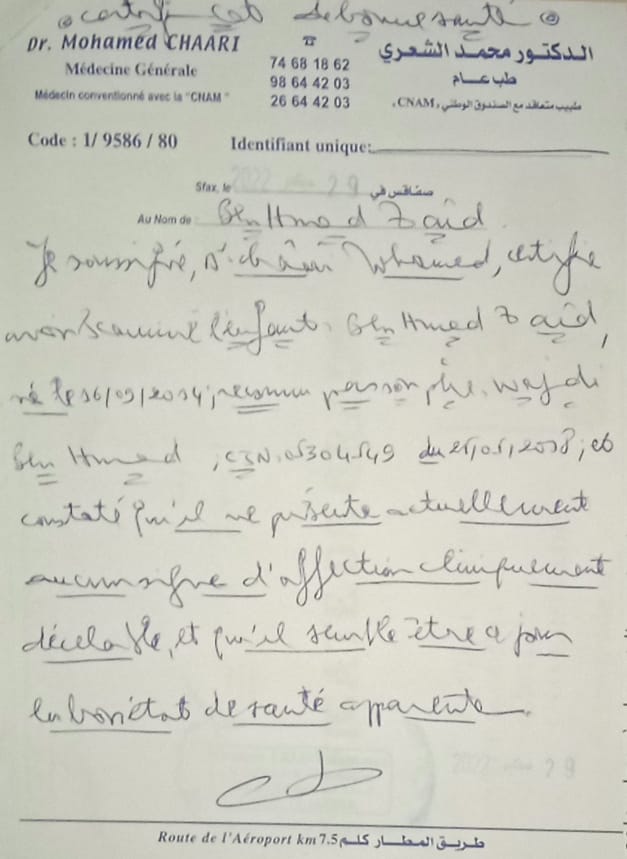 certificat de bonne santé
Dr. Mohamed CHAARI
Médecine Générale
Médecin conventionné avec la "CNAM"
☎
74 68 18 62
98 64 42 03
26 64 42 03
الدكتور محمد الشعري
طب عام
طبيب متعاقد مع الصندوق الوطني ،CNAM،
Code : 1/ 9586 / 80
Identifiant unique:
Sfax, le 2022 29 صفاقس في
Au Nom de : Ben Hmed Zaid
Je soussigné, Dr Chaari Mohamed, certifie
avoir examiné l'enfant Ben Hmed Zaid,
né le 16/09/2014, reconnu par son père, Wajdi
Ben Hmed, CIN 05304549 du 2018, et
constaté qu'il ne présente actuellement
aucun signe d'affection cliniquement
décelable, et qu'il semble être à jour
en bon état de santé apparente.
2022 29
Route de l'Aéroport km 7.5 طريق المطار كلم